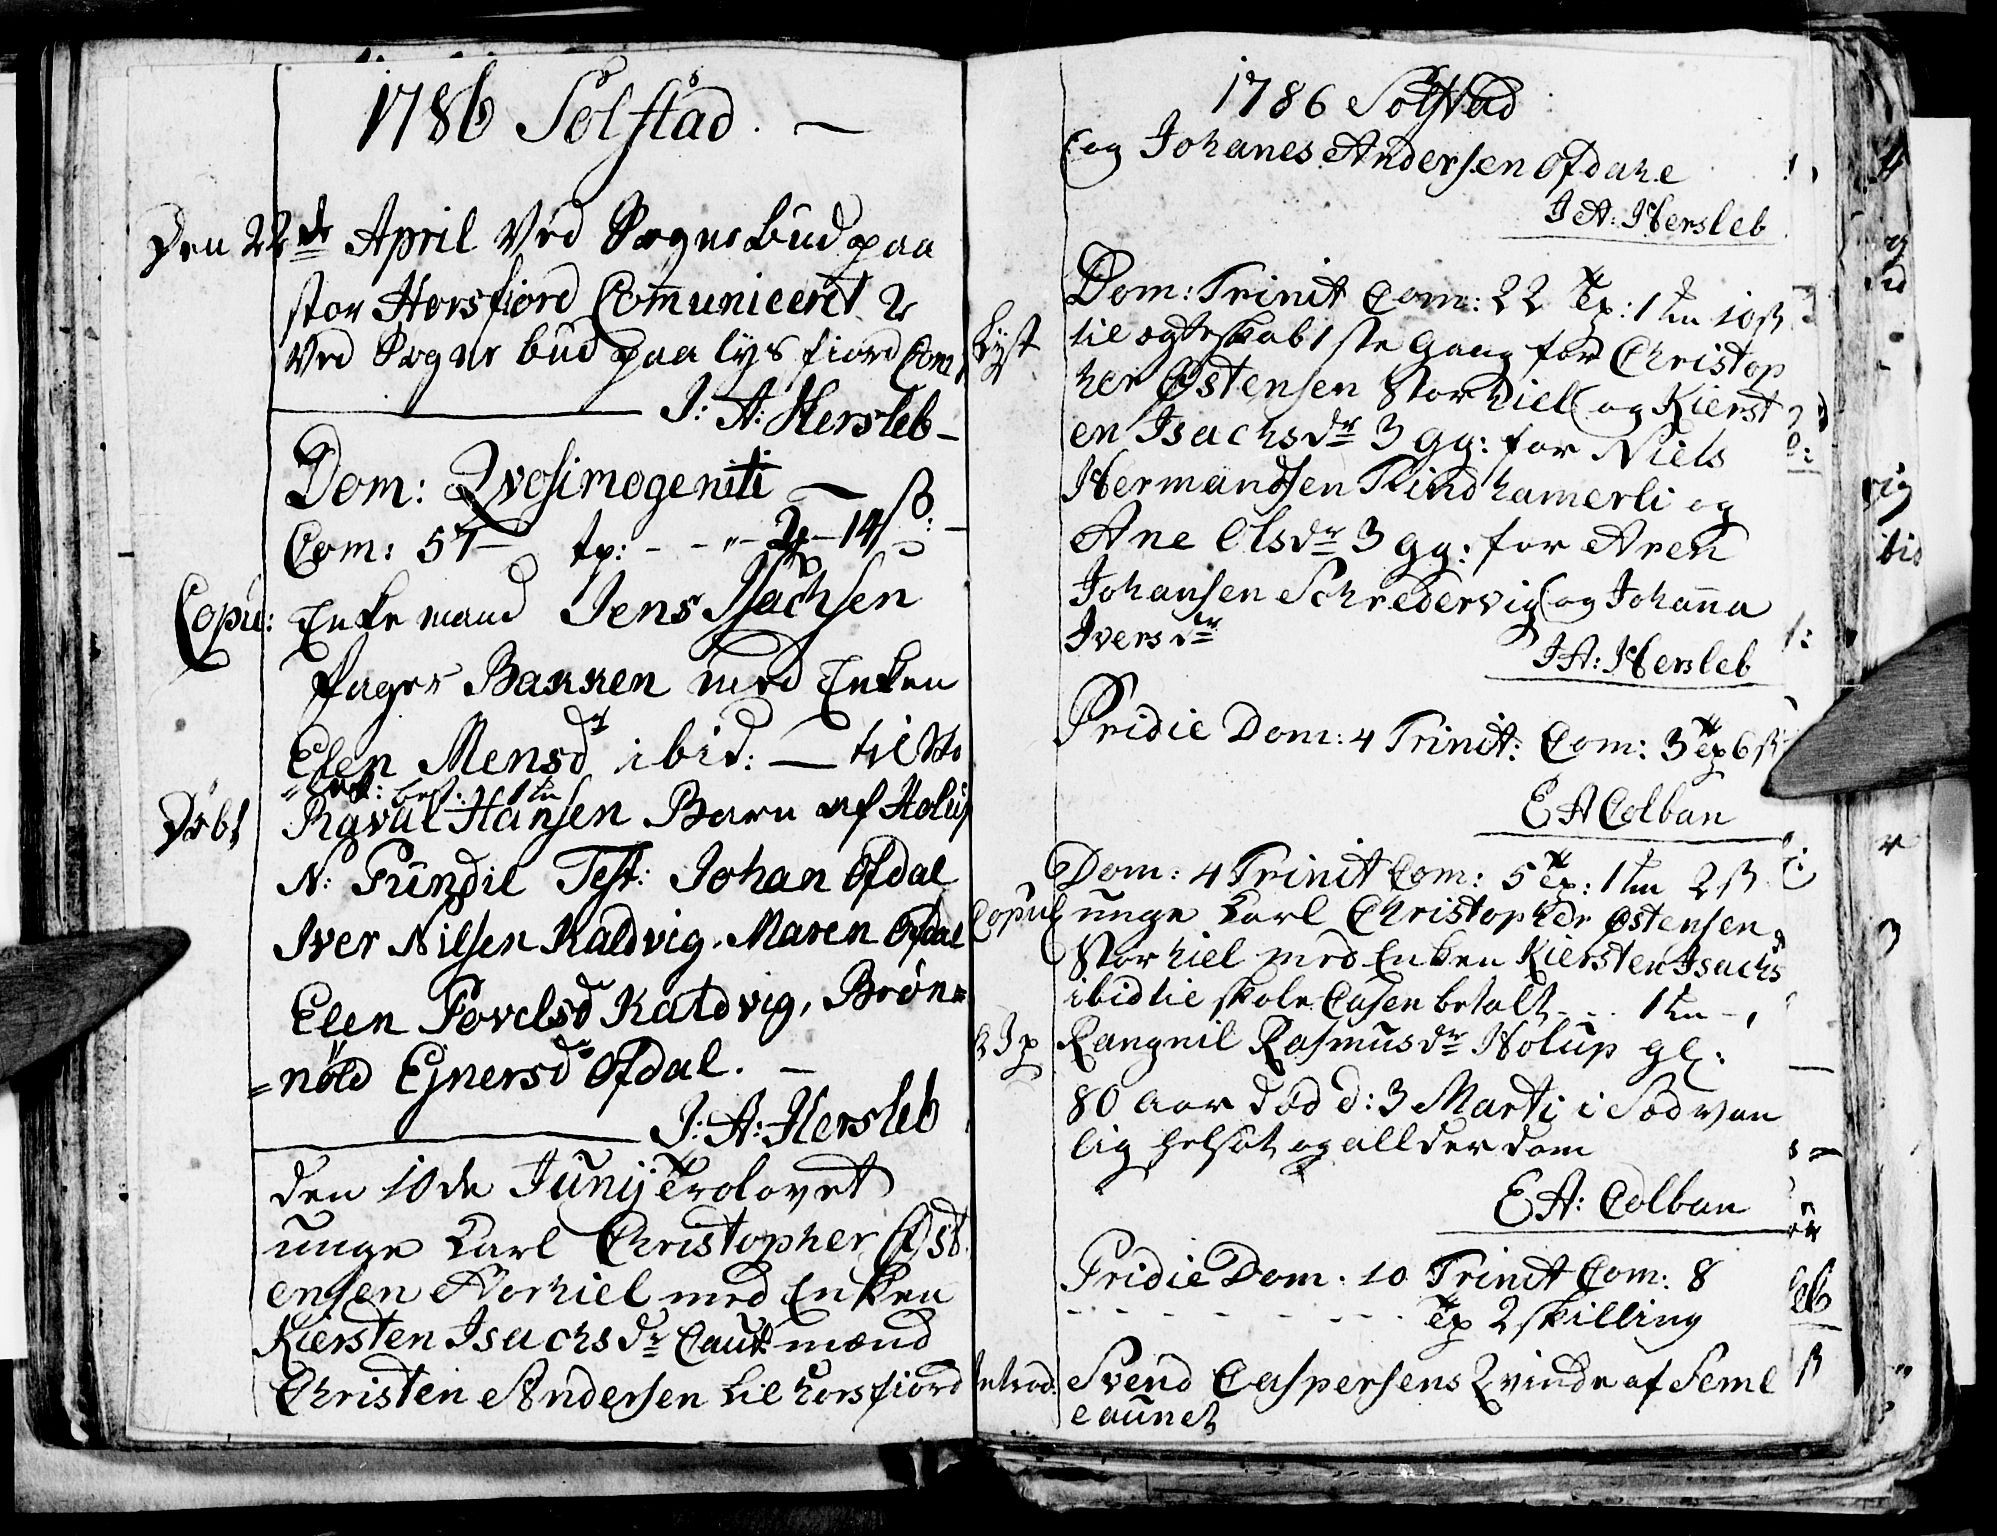 1786 Solstad. —
Den 22de April Ved Sogne bud paa
stor Horsfiord Comuniceret 2
Ved Sogne bud paa lys fiord Com
J: A: Hersleb –
Dom: Qvosimogeniti —
Com: 57 — tp: - - „ - 2 — 14 ß: –
Copu: Enke mand Jens Isachsen
fager Bakken med Enken
Elen Mensdr ibid: — til
bet: 1 m
Døbt Ravål Hansen Barn af Holup
N: Pundil Test: Johan Ofdal
Iver Nilsen Kaldvig. Maren Ofdal
Elen Povelsd Kaldvig, Brøn=
=nöld Ejnersd Ofdal. —
J: A: Hersleb
den 10de Junij Trolovet
unge Karl Christopher Øst
ensen Storhiel med Enken
Kiersten Isachs dr Caut mænd
Christen Andersen lil horsfiord
1786 Solstad
og Johanes Andersen Ofdahl
J A: Hersleb
Dom: Trinit Com: 22 Tp: 1 m 10 ß
Lyst til ægteskab 1ste Gang for Christop
her Østensen Storhiel og Kierst
en Isachsdr 3 gg: for Niels
Hermandsen Rindhamerli og
Ane Olsdr 3 gg: for Aren
Johansen Schredervig og Johanna
Iversdr
J A: Hersleb
Pridie Dom: 4 Trinit: Com: 3 Tp 6 ß
E A Colban
Dom: 4 Trinit Com: 5 Tp: 1 m 2 ß
Copul unge Karl Christopher Østensen
Storhiel med Enken Kiersten Isachs
ibid til skole Casen betalt - - 1 m –
Jp Rangnil Rasmusdr Holup gl:
80 aar död d: 3 Marti i Sæd van
lig helsot og allderdom
E A: Colban
Pridie Dom: 10 Trinit Com: 8
- - - - - - - - Tp 2 skilling
Introd. Svend Caspersens Qvinde af Seml
eaunet